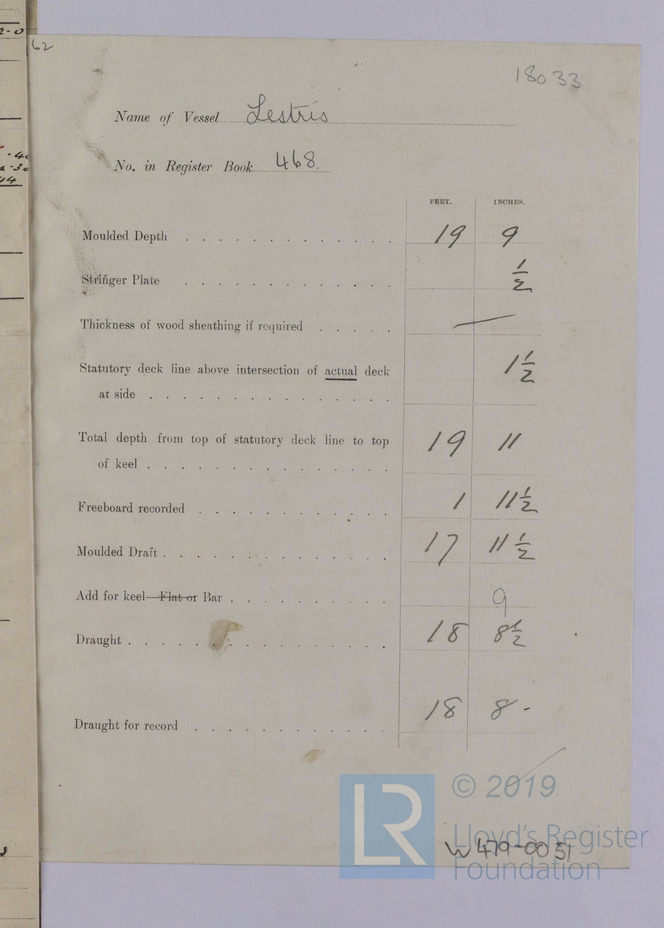 62
18033
Name of Vessel Lestris
No. in Register Book 468.
FEET. INCHES.
Moulded Depth . . . . . . . . . . . . . 19 9
Stringer Plate . . . . . . . . . . . . . 1/2
Thickness of wood sheathing if required . . . . . —
Statutory deck line above intersection of actual deck 1 1/2
at side . . . . . . . . . . . . . . .
Total depth from top of statutory deck line to top 19 11
of keel . . . . . . . . . . . . . . .
Freeboard recorded . . . . . . . . . . . . 1 11 1/2
Moulded Draft . . . . . . . . . . . . . . 17 11 1/2
Add for keel—Flat or Bar . . . . . . . . . . 9
Draught . . . . . . . . . . . . . . . . 18 8 1/2
Draught for record . . . . . . . . . . . . 18 8 -
© 2019
LR
Lloyd's Register
W479-0051
Foundation